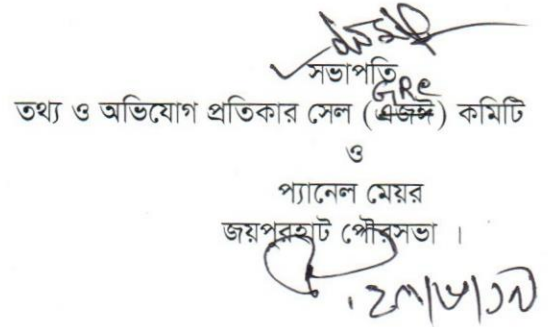 সভাপতি
GRC
তথ্য ও অভিযোগ প্রতিকার সেল () কমিটি
ও
প্যানেল মেয়র
জয়পুরহাট পৌরসভা ।